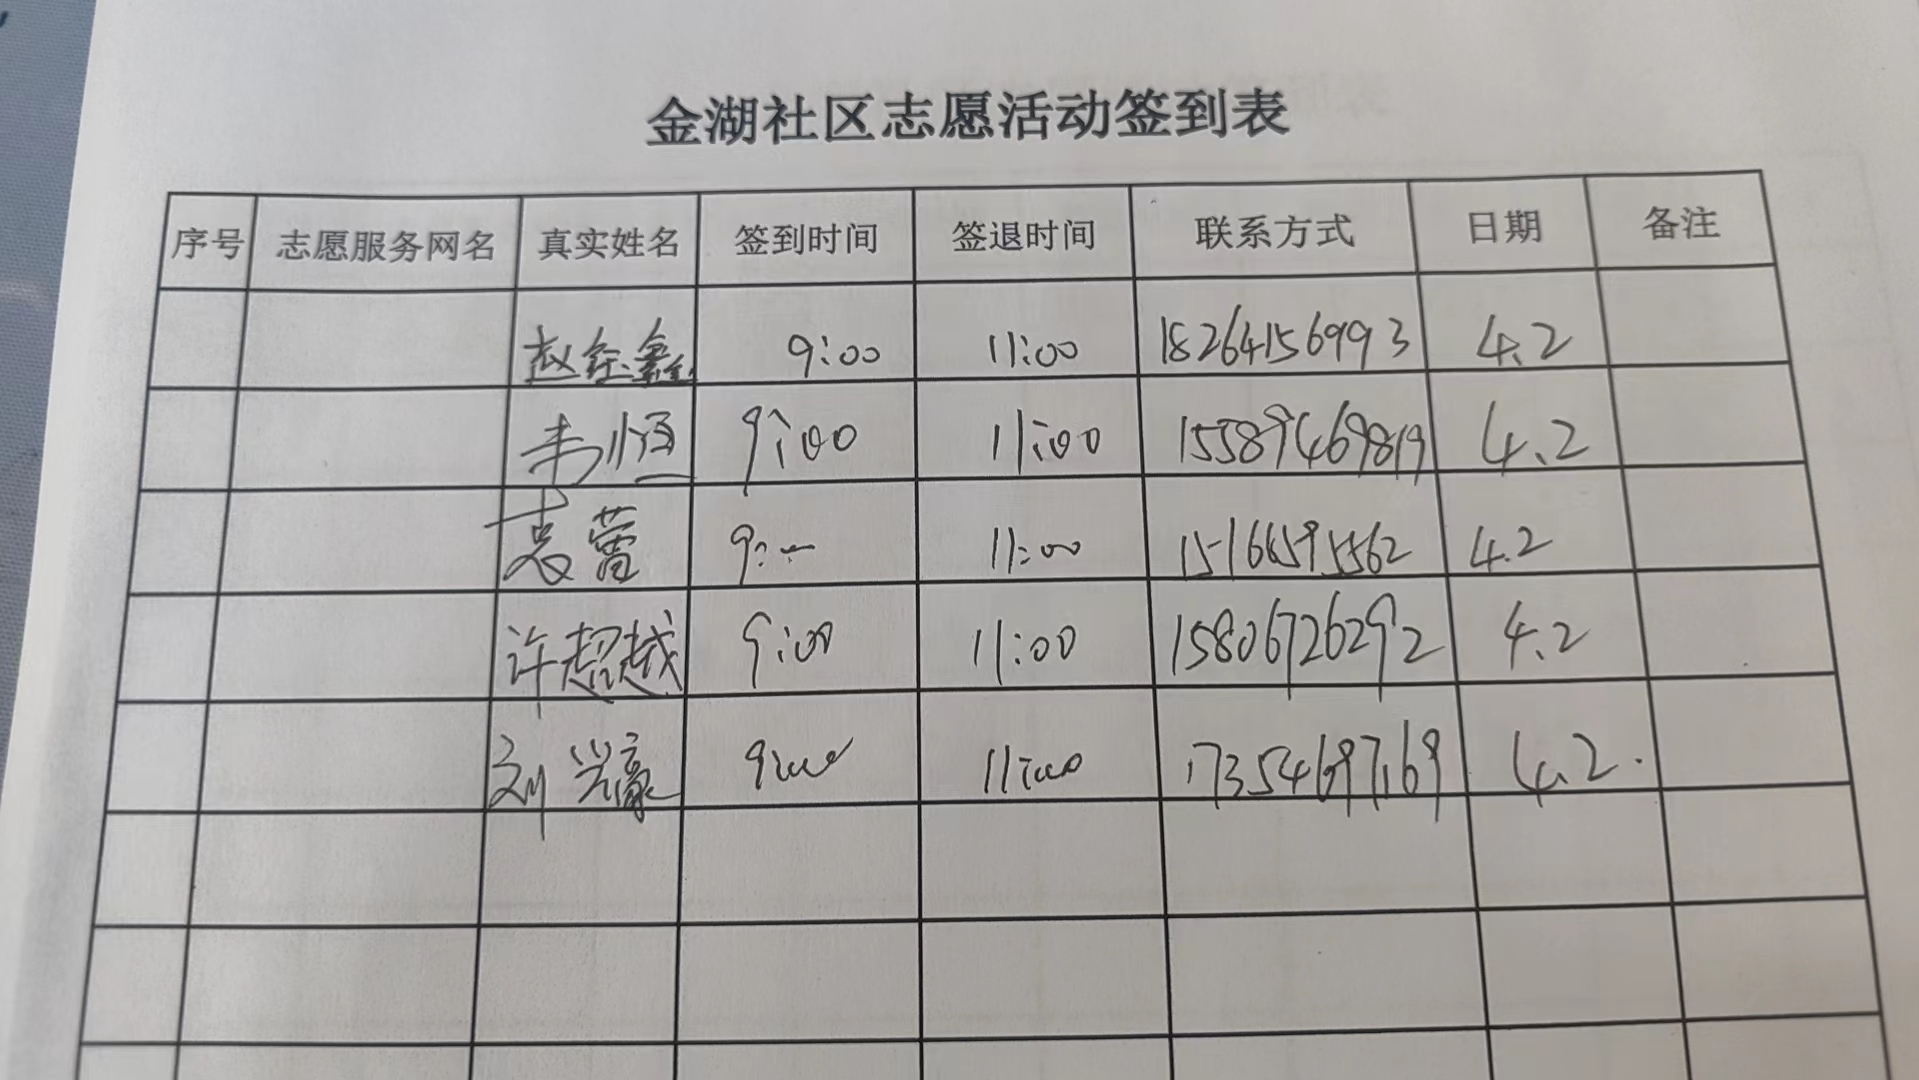 金湖社区志愿活动签到表
序号 志愿服务网名 真实姓名 签到时间 签退时间 联系方式 日期 备注
赵 鑫 9:00 11:00 18264156993 4.2
韦恒 9:00 11:00 15589469819 4.2
袁蕾 9:- 11:00 15166595562 4.2
许超越 9:00 11:00 15806726292 4.2
刘兴豪 9:00 11:00 17354697169 4.2.